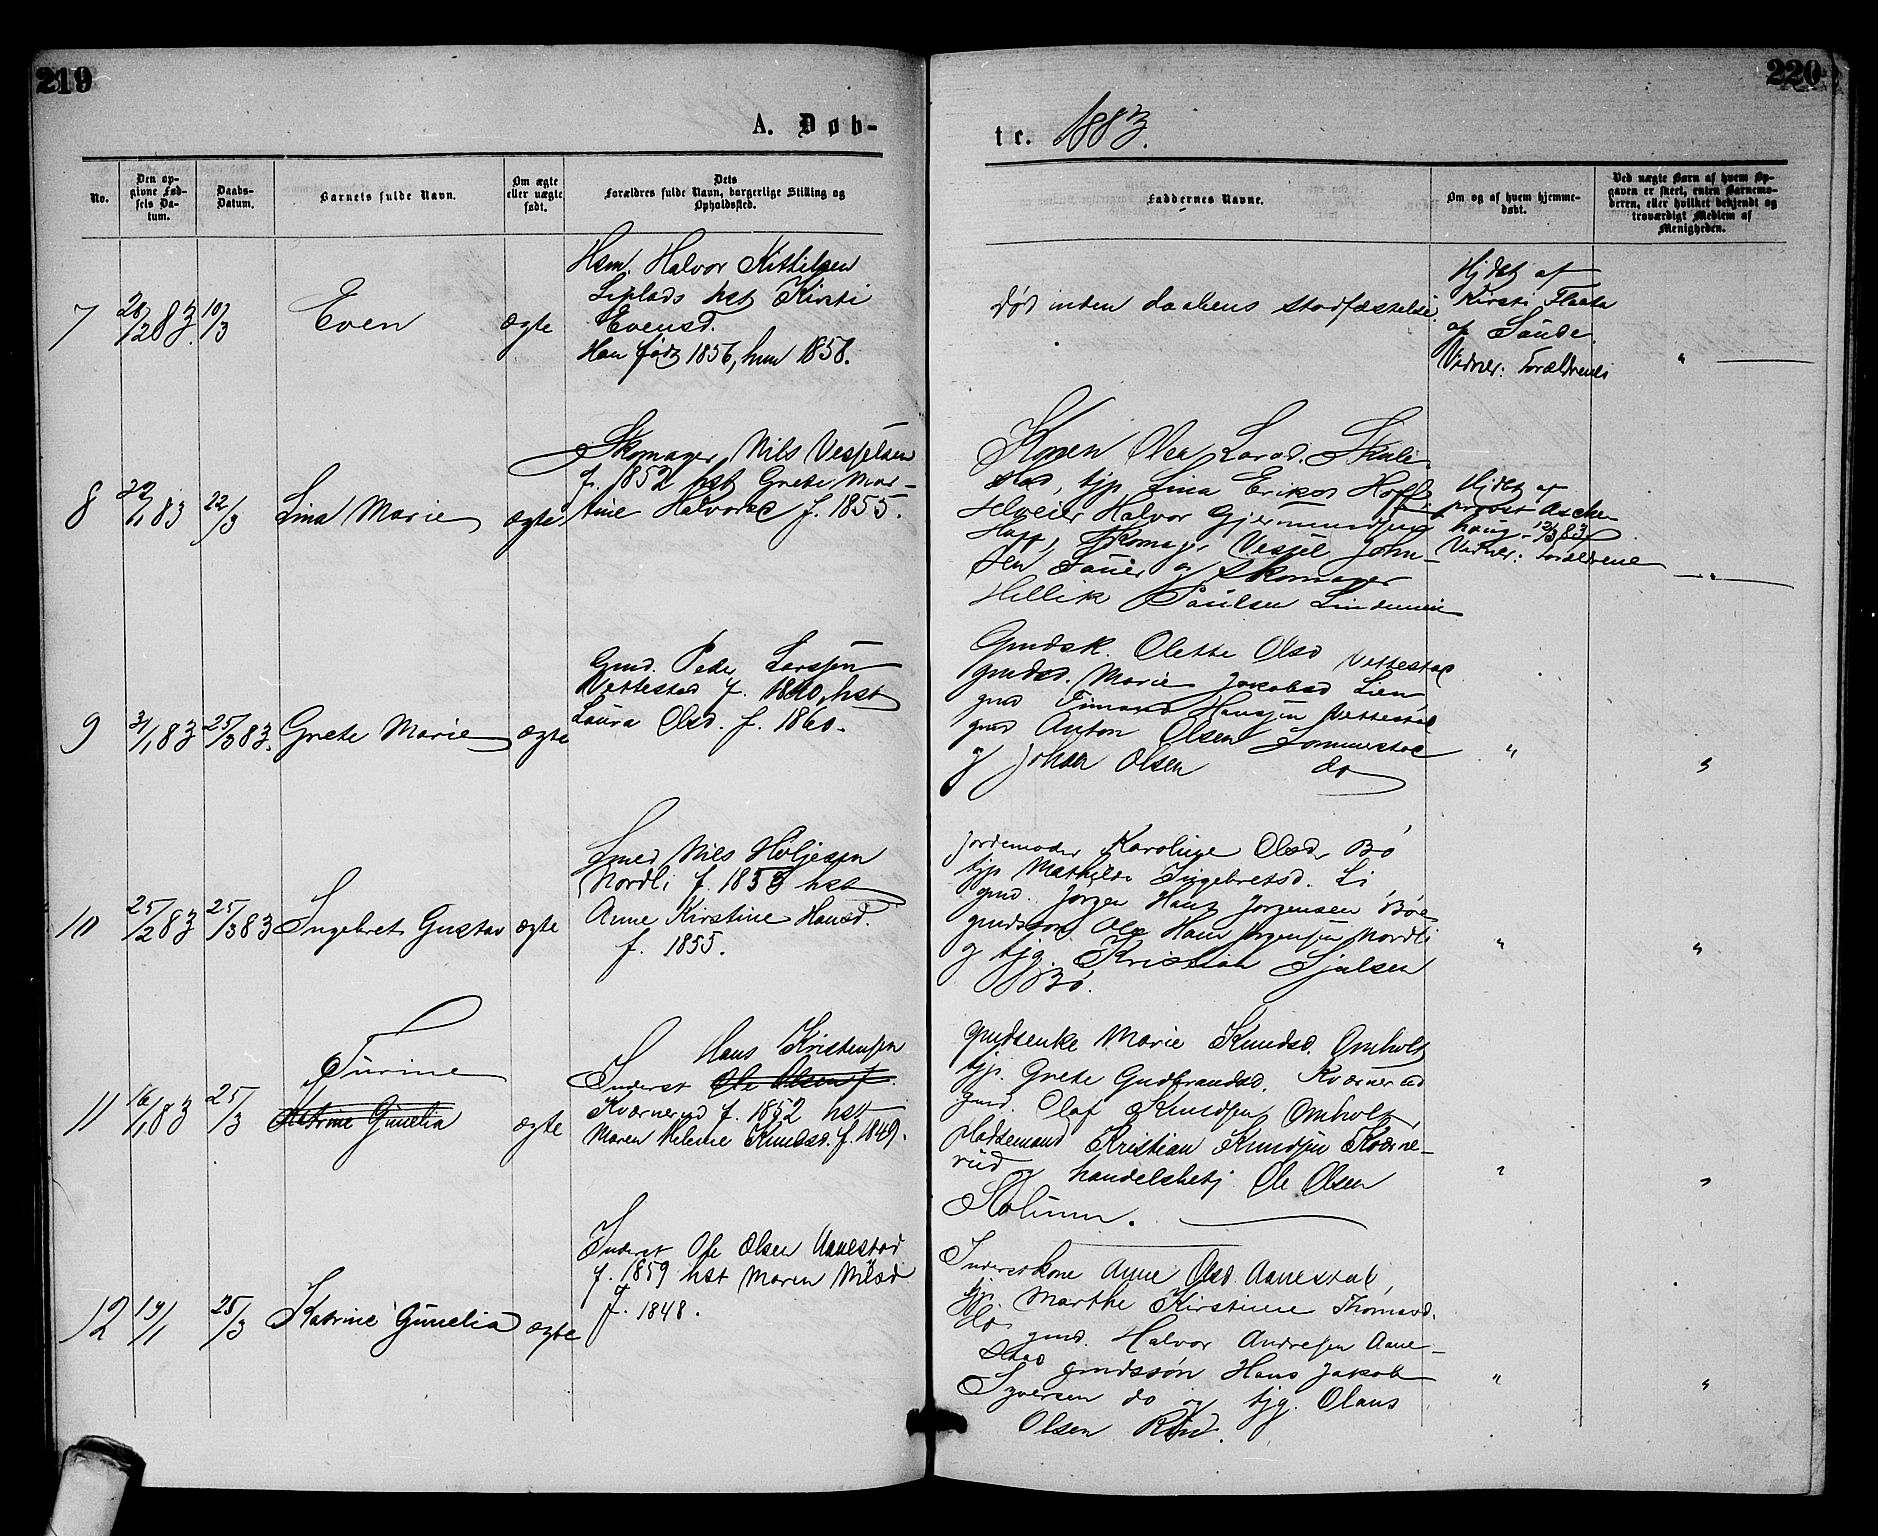 219
220
A. Døb-
te. 1883.
No.
Den op-
givne Fød-
sels Da-
tum.
Daabs-
Datum.
Barnets fulde Navn.
Om ægte
eller uægte
født.
Dets
Forældres fulde Navn, borgerlige Stilling og
Opholdssted.
Faddernes Navne.
Om og af hvem hjemme-
døbt.
Ved uægte Børn af hvem Op-
gaven er skeet, enten Barnemo-
deren, eller hvilket bekjendt og
troværdigt Medlem af
Menigheden.
7 28/2 83. 10/3 Even ægte
Hsm. Halvor Kittilsen
Seplads hst Kirsti
Evensd.
Han født 1856, hun 1858.
død inden daabens stadfæstelse.
Hjdbt af
Kirsti Flaata
af Saude.
Vidner: Forældrene
"
8 83 22/3 Lina Marie ægte
Skomager Nils Vesselsen
f. 1852 hst Grete Mar-
tine Halvorsd f. 1855.
Konen Olea Larsd. Skuli-
stad, tjp Lina Eriksd Hoff
Selveier Halvor Gjermundsen
Hoff, Skomager Vessel John-
sen, Sauer og Skomager
Hellik Paulsen
Hjdbt af
provst Aschen-
houg 12/3 83
Vidner: Forældrene
"
9 31/1 83 25/3 83. Grete Marie ægte
Gmd. Peder Larssen
Vettestad f. 1840, hst
Laura Olsd. f. 1860.
Gmdsk. Olette Olsd Vettestad
gmdsd. Marie Jakobsd Lien
gmd Hanssen Vettestad
gmd Anton Olsen Sommerstad
og Johan Olsen do
"
"
10 25/2 83 25/3 83 Ingebret Gustav ægte
Smed Nils Høljesen
Nordli f. 1853 hst
Anne Kirstine Hansd.
f. 1855.
Jordemoder Karoline Olsd. Bø
tjp Mathilde Ingebretsd. Li
gmd. Jørgen Hans Jørgensen Bøe
gmdssøn Ole Hans Jørgensen Nordli
og tjg. Kristian Sjulsen
Bø.
"
"
11 16/1 83 25/3
Turine
Katrine Gunelia
ægte
Hans Kristensen
Inderst Ole Olsen f.
Kværnerud f. 1852 hst
Maren Helene Knudsd. f. 1849.
gmdsenke Marie Knudsd. Omholt
tjp. Grete Gudbrandsd. Kværnerud
gmd. Olaf Knudsen Omholt,
Pladsemand Kristian Knudsen Kværne-
rud og handelsbetj Ole Olsen
Holum.
"
"
12 19/1 25/3 Katrine Gunelia ægte
Inderst Ole Olsen Aanestad
f. 1859 hst Maren Nilsd
f. 1848.
Inderstkone Anne Olsd Aanestad,
tjp. Marthe Kirstine Thomasd.
do gmd. Halvor Andresen Aane-
stad gmdssøn Hans Jakob
Syversen do og tjg. Olaus
Olsen
"
"